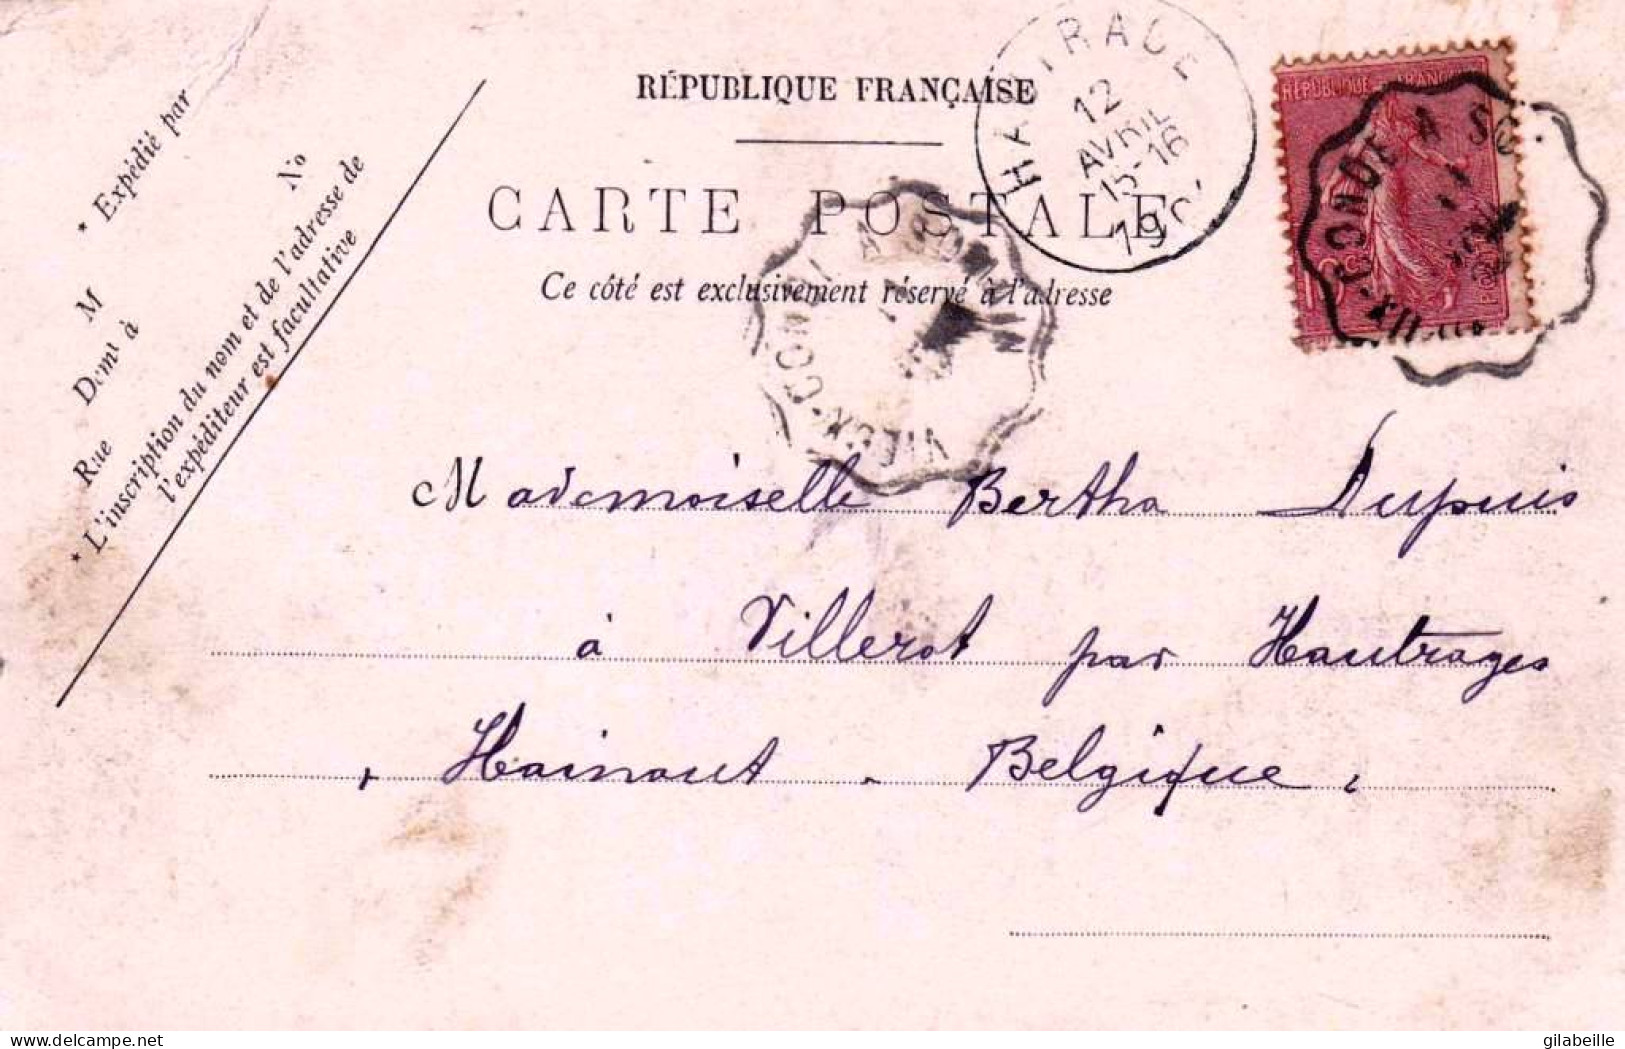 RÉPUBLIQUE FRANÇAISE
CARTE POSTALE
Ce côté est exclusivement réservé à l'adresse
* Expédié par
No
M
Domt à
Rue
* L'inscription du nom et de l'adresse de
l'expéditeur est facultative
12
AVRIL
15-16
RÉPUBLIQUE FRANÇAISE
CONDE A
VIEUX-CONDE A
Mademoiselle Bertha Dupuis
à Villerot par Hautrages
Hainaut - Belgique
delcampe.net
gilabeille